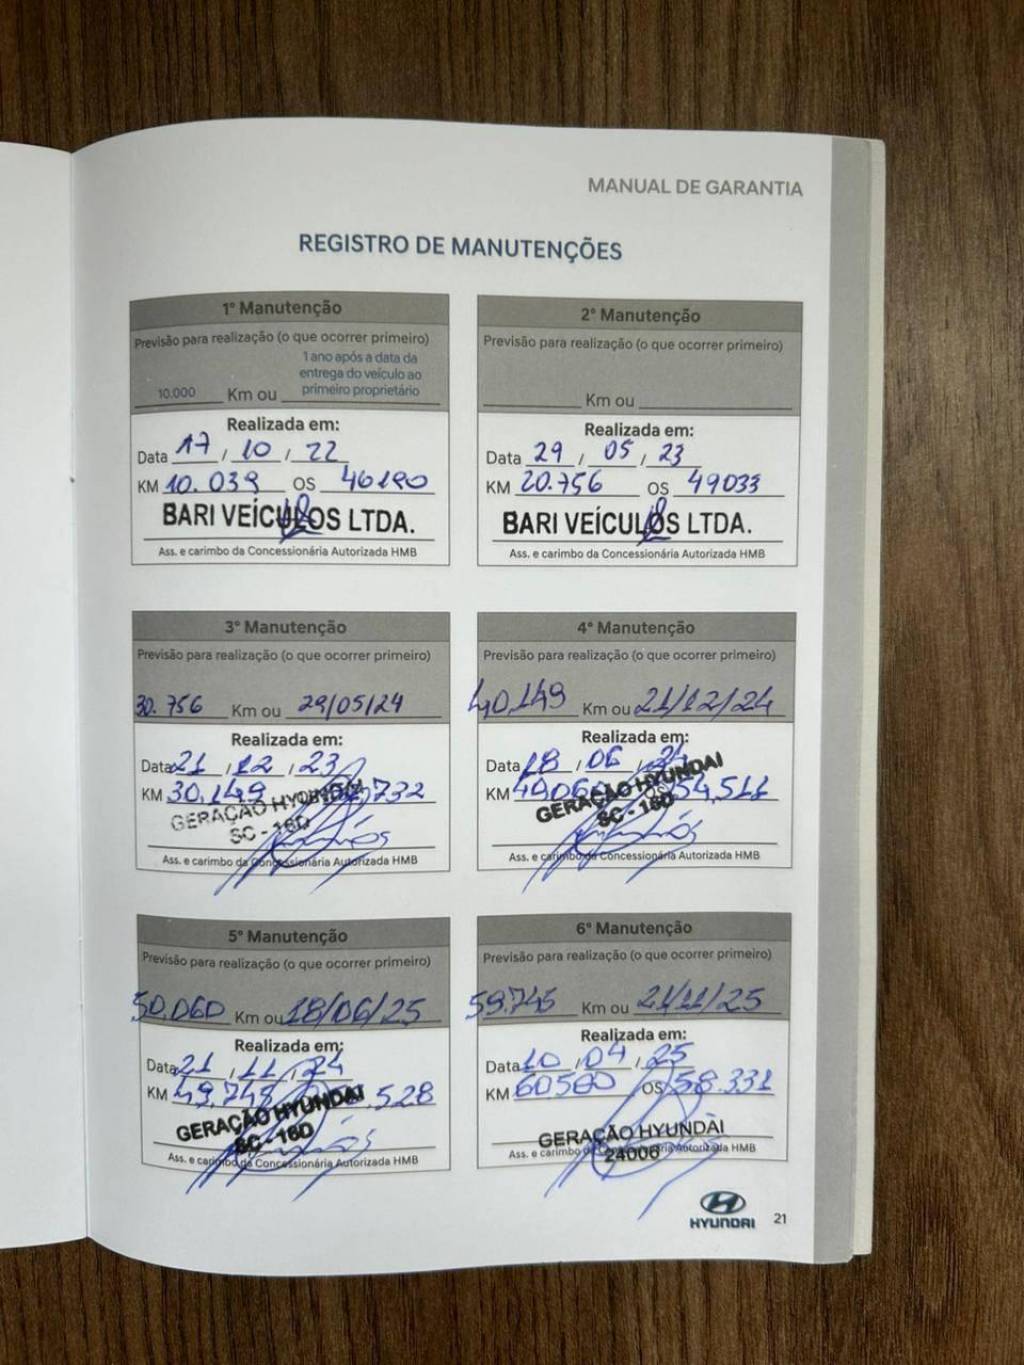 MANUAL DE GARANTIA
REGISTRO DE MANUTENÇÕES
1ª Manutenção
Previsão para realização (o que ocorrer primeiro)
10.000 Km ou 1 ano após a data da entrega do veículo ao primeiro proprietário
Realizada em:
Data 17 / 10 / 22
KM 10.039 OS 46190
BARI VEÍCULOS LTDA.
Ass. e carimbo da Concessionária Autorizada HMB
2ª Manutenção
Previsão para realização (o que ocorrer primeiro)
Km ou
Realizada em:
Data 29 / 05 / 23
KM 20.756 OS 49033
BARI VEÍCULOS LTDA.
Ass. e carimbo da Concessionária Autorizada HMB
3ª Manutenção
Previsão para realização (o que ocorrer primeiro)
30.756 Km ou 29/05/24
Realizada em:
Data 21 / 12 / 23
KM 30,149
GERAÇÃO HYUNDAI
SC - 16D
Ass. e carimbo da Concessionária Autorizada HMB
4ª Manutenção
Previsão para realização (o que ocorrer primeiro)
40,149 Km ou 21/12/24
Realizada em:
Data 18 / 06 / 24
KM 40,060 OS 54,511
GERAÇÃO HYUNDAI
SC - 16D
Ass. e carimbo da Concessionária Autorizada HMB
5ª Manutenção
Previsão para realização (o que ocorrer primeiro)
50,060 Km ou 18/06/25
Realizada em:
Data 21 / 11 / 24
KM 49,745
GERAÇÃO HYUNDAI
SC - 16D
Ass. e carimbo da Concessionária Autorizada HMB
6ª Manutenção
Previsão para realização (o que ocorrer primeiro)
59.745 Km ou 21/11/25
Realizada em:
Data 10 / 04 / 25
KM 60500 OS 58.331
GERAÇÃO HYUNDAI
24006
Ass. e carimbo da Concessionária Autorizada HMB
HYUNDAI 21